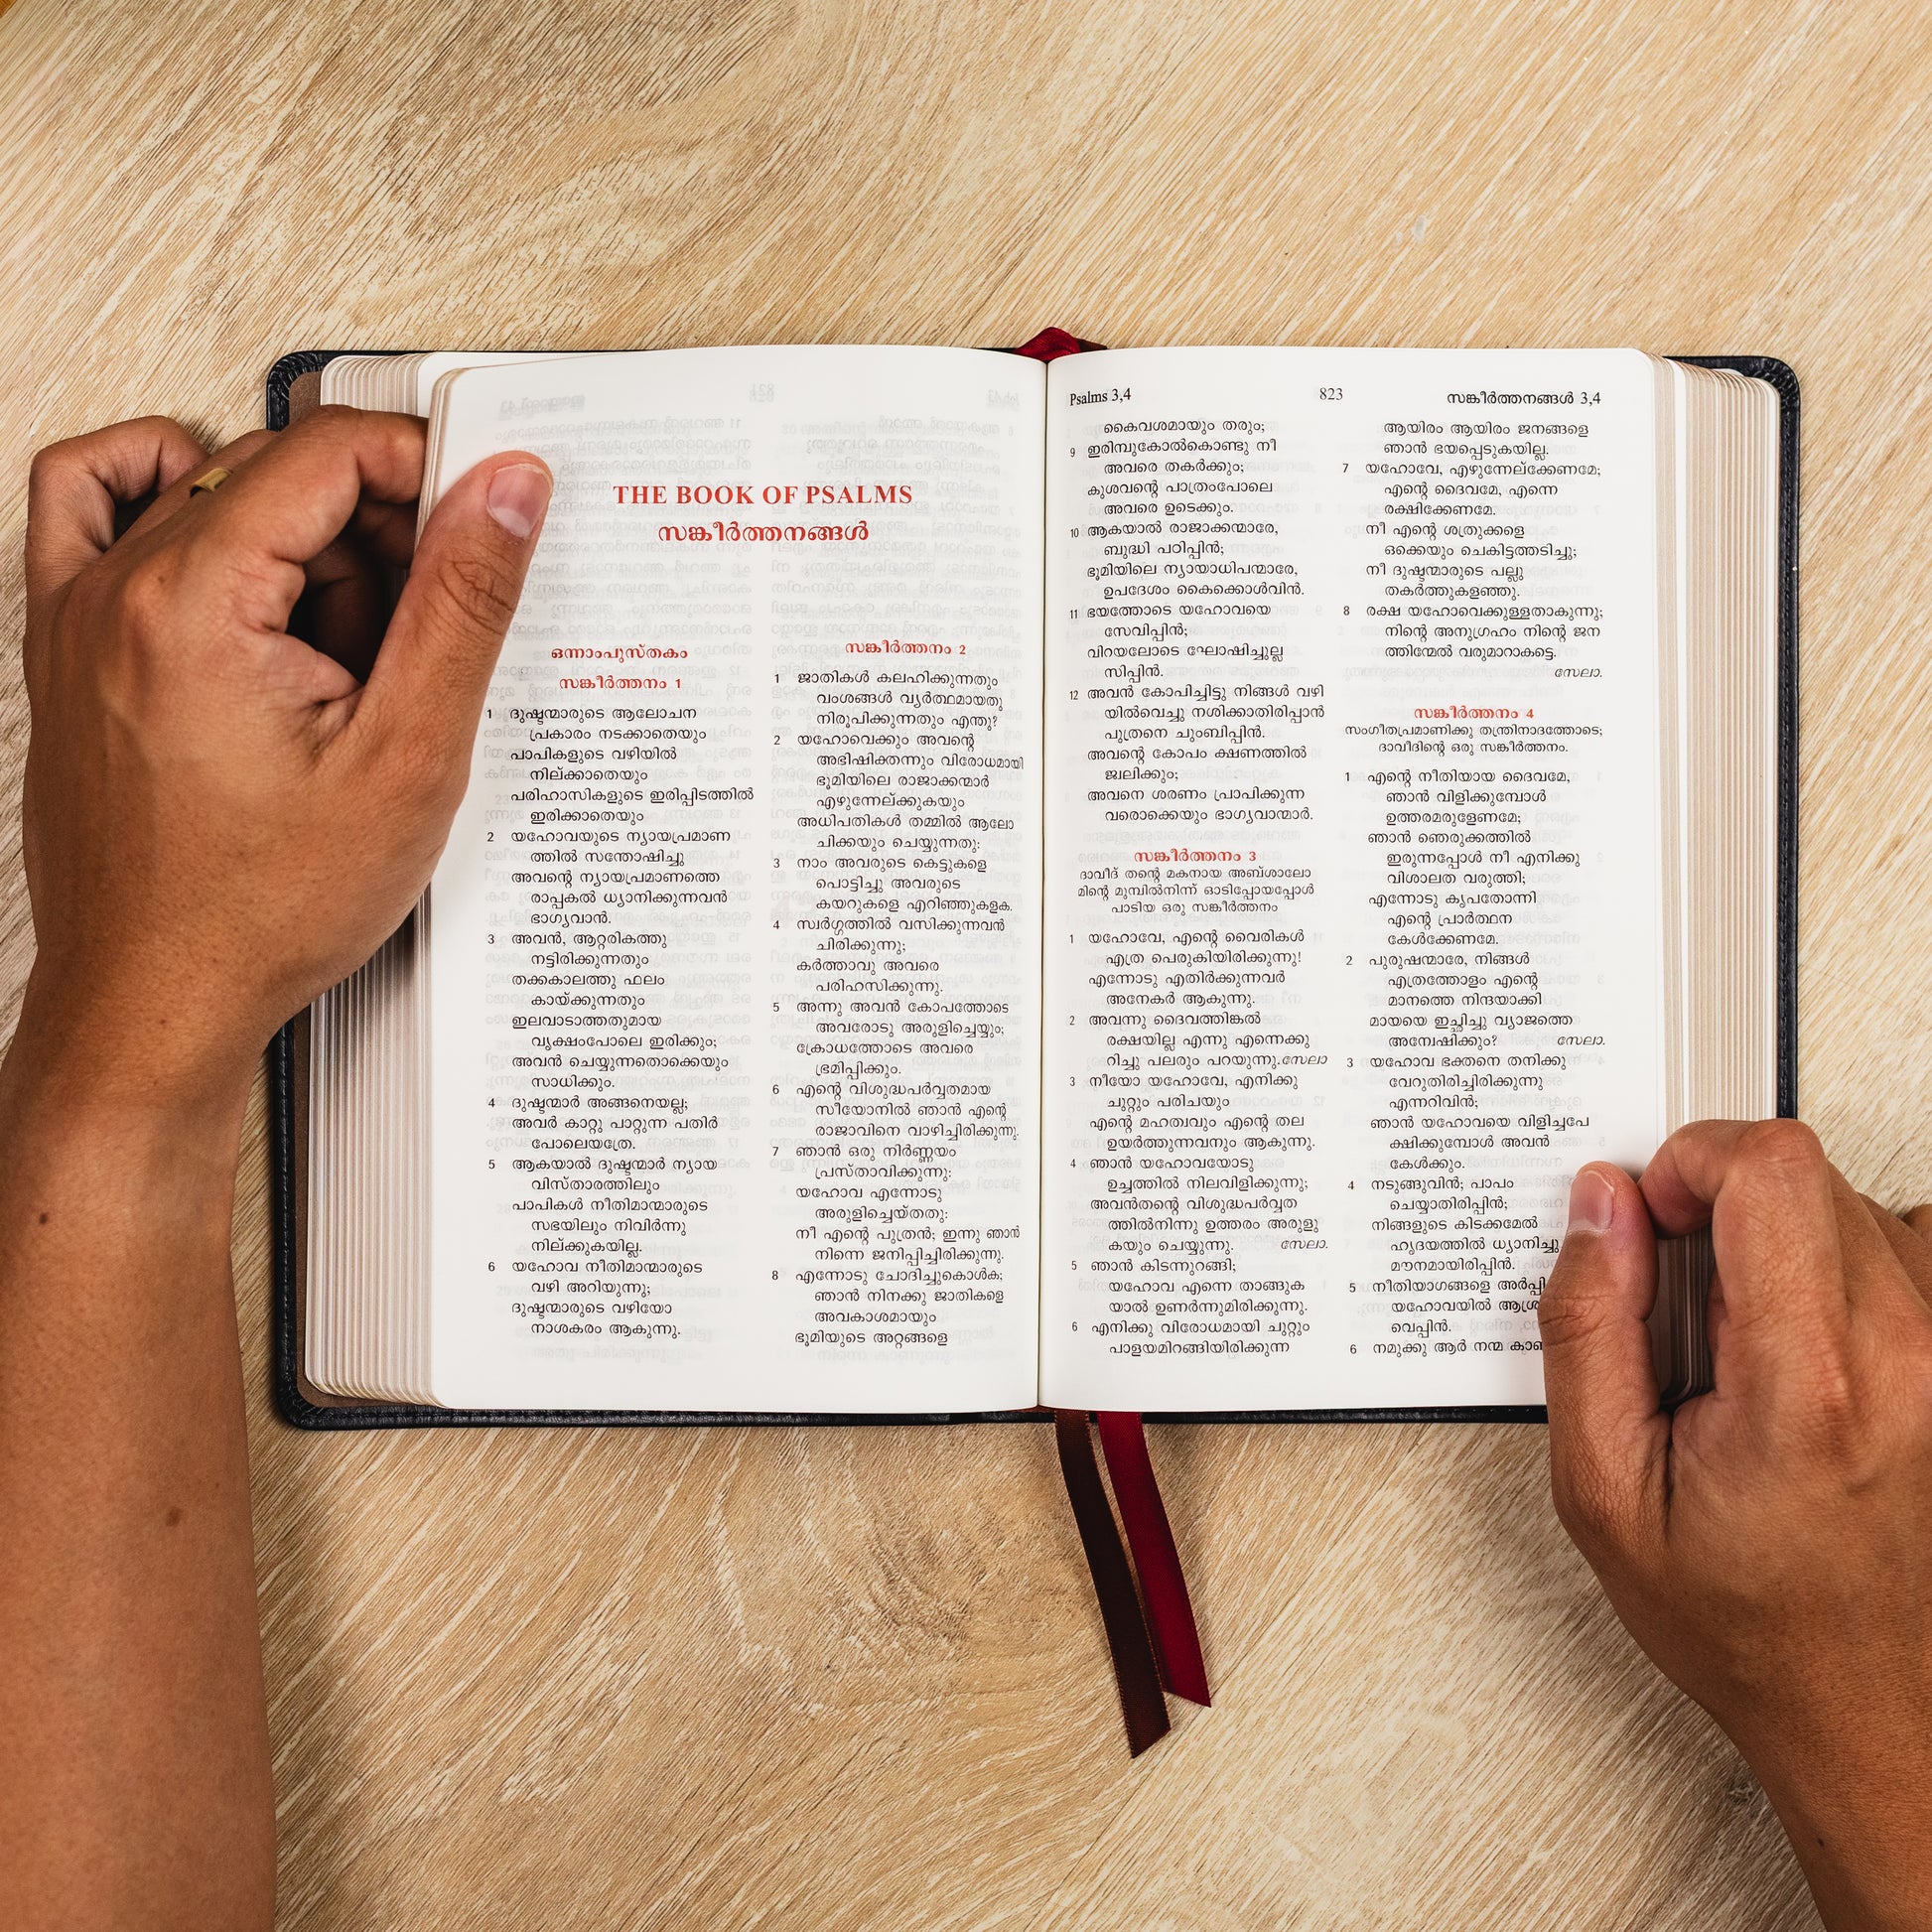 THE BOOK OF PSALMS
സങ്കീർത്തനങ്ങൾ
ഒന്നാംപുസ്തകം
സങ്കീർത്തനം 1
1 ദുഷ്ടന്മാരുടെ ആലോചന
പ്രകാരം നടക്കാതെയും
പാപികളുടെ വഴിയിൽ
നില്ക്കാതെയും
പരിഹാസികളുടെ ഇരിപ്പിടത്തിൽ
ഇരിക്കാതെയും
2 യഹോവയുടെ ന്യായപ്രമാണ
ത്തിൽ സന്തോഷിച്ചു
അവന്റെ ന്യായപ്രമാണത്തെ
രാപ്പകൽ ധ്യാനിക്കുന്നവൻ
ഭാഗ്യവാൻ.
3 അവൻ, ആറ്റരികത്തു
നട്ടിരിക്കുന്നതും
തക്കകാലത്തു ഫലം
കായ്ക്കുന്നതും
ഇലവാടാത്തതുമായ
വൃക്ഷംപോലെ ഇരിക്കും;
അവൻ ചെയ്യുന്നതൊക്കെയും
സാധിക്കും.
4 ദുഷ്ടന്മാർ അങ്ങനെയല്ല;
അവർ കാറ്റു പാറ്റുന്ന പതിർ
പോലെയത്രേ.
5 ആകയാൽ ദുഷ്ടന്മാർ ന്യായ
വിസ്താരത്തിലും
പാപികൾ നീതിമാന്മാരുടെ
സഭയിലും നിവിർന്നു
നില്ക്കുകയില്ല.
6 യഹോവ നീതിമാന്മാരുടെ
വഴി അറിയുന്നു;
ദുഷ്ടന്മാരുടെ വഴിയോ
നാശകരം ആകുന്നു.
സങ്കീർത്തനം 2
1 ജാതികൾ കലഹിക്കുന്നതും
വംശങ്ങൾ വ്യർത്ഥമായതു
നിരൂപിക്കുന്നതും എന്തു?
2 യഹോവെക്കും അവന്റെ
അഭിഷിക്തന്നും വിരോധമായി
ഭൂമിയിലെ രാജാക്കന്മാർ
എഴുന്നേല്ക്കുകയും
അധിപതികൾ തമ്മിൽ ആലോ
ചിക്കയും ചെയ്യുന്നതു:
3 നാം അവരുടെ കെട്ടുകളെ
പൊട്ടിച്ചു അവരുടെ
കയറുകളെ എറിഞ്ഞുകളക.
4 സ്വർഗ്ഗത്തിൽ വസിക്കുന്നവൻ
ചിരിക്കുന്നു;
കർത്താവു അവരെ
പരിഹസിക്കുന്നു.
5 അന്നു അവൻ കോപത്തോടെ
അവരോടു അരുളിച്ചെയ്യും;
ക്രോധത്തോടെ അവരെ
ഭ്രമിപ്പിക്കും.
6 എന്റെ വിശുദ്ധപർവ്വതമായ
സീയോനിൽ ഞാൻ എന്റെ
രാജാവിനെ വാഴിച്ചിരിക്കുന്നു.
7 ഞാൻ ഒരു നിർണ്ണയം
പ്രസ്താവിക്കുന്നു:
യഹോവ എന്നോടു
അരുളിച്ചെയ്തതു:
നീ എന്റെ പുത്രൻ; ഇന്നു ഞാൻ
നിന്നെ ജനിപ്പിച്ചിരിക്കുന്നു.
8 എന്നോടു ചോദിച്ചുകൊൾക;
ഞാൻ നിനക്കു ജാതികളെ
അവകാശമായും
ഭൂമിയുടെ അറ്റങ്ങളെ
Psalms 3,4 823 സങ്കീർത്തനങ്ങൾ 3,4
കൈവശമായും തരും;
9 ഇരിമ്പുകോൽകൊണ്ടു നീ
അവരെ തകർക്കും;
കുശവന്റെ പാത്രംപോലെ
അവരെ ഉടെക്കും.
10 ആകയാൽ രാജാക്കന്മാരേ,
ബുദ്ധി പഠിപ്പിൻ;
ഭൂമിയിലെ ന്യായാധിപന്മാരേ,
ഉപദേശം കൈക്കൊൾവിൻ.
11 ഭയത്തോടെ യഹോവയെ
സേവിപ്പിൻ;
വിറയലോടെ ഘോഷിച്ചുല്ല
സിപ്പിൻ.
12 അവൻ കോപിച്ചിട്ടു നിങ്ങൾ വഴി
യിൽവെച്ചു നശിക്കാതിരിപ്പാൻ
പുത്രനെ ചുംബിപ്പിൻ.
അവന്റെ കോപം ക്ഷണത്തിൽ
ജ്വലിക്കും;
അവനെ ശരണം പ്രാപിക്കുന്ന
വരൊക്കെയും ഭാഗ്യവാന്മാർ.
സങ്കീർത്തനം 3
ദാവീദ് തന്റെ മകനായ അബ്ശാലോ
മിന്റെ മുമ്പിൽനിന്ന് ഓടിപ്പോയപ്പോൾ
പാടിയ ഒരു സങ്കീർത്തനം
1 യഹോവേ, എന്റെ വൈരികൾ
എത്ര പെരുകിയിരിക്കുന്നു!
എന്നോടു എതിർക്കുന്നവർ
അനേകർ ആകുന്നു.
2 അവന്നു ദൈവത്തിങ്കൽ
രക്ഷയില്ല എന്നു എന്നെക്കു
റിച്ചു പലരും പറയുന്നു.സേലാ
3 നീയോ യഹോവേ, എനിക്കു
ചുറ്റും പരിചയും
എന്റെ മഹത്വവും എന്റെ തല
ഉയർത്തുന്നവനും ആകുന്നു.
4 ഞാൻ യഹോവയോടു
ഉച്ചത്തിൽ നിലവിളിക്കുന്നു;
അവൻതന്റെ വിശുദ്ധപർവ്വത
ത്തിൽനിന്നു ഉത്തരം അരുളു
കയും ചെയ്യുന്നു. സേലാ.
5 ഞാൻ കിടന്നുറങ്ങി;
യഹോവ എന്നെ താങ്ങുക
യാൽ ഉണർന്നുമിരിക്കുന്നു.
6 എനിക്കു വിരോധമായി ചുറ്റും
പാളയമിറങ്ങിയിരിക്കുന്ന
ആയിരം ആയിരം ജനങ്ങളെ
ഞാൻ ഭയപ്പെടുകയില്ല.
7 യഹോവേ, എഴുന്നേല്ക്കേണമേ;
എന്റെ ദൈവമേ, എന്നെ
രക്ഷിക്കേണമേ.
നീ എന്റെ ശത്രുക്കളെ
ഒക്കെയും ചെകിട്ടത്തടിച്ചു;
നീ ദുഷ്ടന്മാരുടെ പല്ലു
തകർത്തുകളഞ്ഞു.
8 രക്ഷ യഹോവെക്കുള്ളതാകുന്നു;
നിന്റെ അനുഗ്രഹം നിന്റെ ജന
ത്തിന്മേൽ വരുമാറാകട്ടെ.
സേലാ.
സങ്കീർത്തനം 4
സംഗീതപ്രമാണിക്കു തന്ത്രിനാദത്തോടെ;
ദാവീദിന്റെ ഒരു സങ്കീർത്തനം.
1 എന്റെ നീതിയായ ദൈവമേ,
ഞാൻ വിളിക്കുമ്പോൾ
ഉത്തരമരുളേണമേ;
ഞാൻ ഞെരുക്കത്തിൽ
ഇരുന്നപ്പോൾ നീ എനിക്കു
വിശാലത വരുത്തി;
എന്നോടു കൃപതോന്നി
എന്റെ പ്രാർത്ഥന
കേൾക്കേണമേ.
2 പുരുഷന്മാരേ, നിങ്ങൾ
എത്രത്തോളം എന്റെ
മാനത്തെ നിന്ദയാക്കി
മായയെ ഇച്ഛിച്ചു വ്യാജത്തെ
അന്വേഷിക്കും? സേലാ.
3 യഹോവ ഭക്തനെ തനിക്കു
വേറുതിരിച്ചിരിക്കുന്നു
എന്നറിവിൻ;
ഞാൻ യഹോവയെ വിളിച്ചപേ
ക്ഷിക്കുമ്പോൾ അവൻ
കേൾക്കും.
4 നടുങ്ങുവിൻ; പാപം
ചെയ്യാതിരിപ്പിൻ;
നിങ്ങളുടെ കിടക്കമേൽ
ഹൃദയത്തിൽ ധ്യാനിച്ചു
മൗനമായിരിപ്പിൻ.
5 നീതിയാഗങ്ങളെ
യഹോവയിൽ
വെപ്പിൻ.
6 നമുക്കു ആർ നന്മ